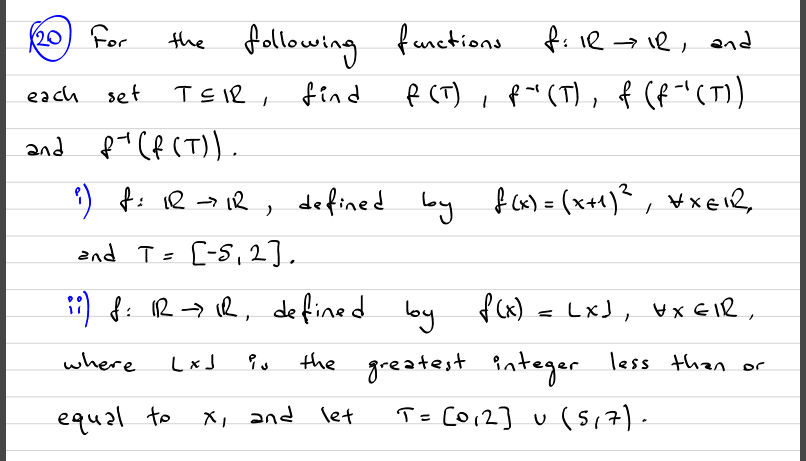 20 For the following functions f: ℝ → ℝ, and
each set T ⊆ ℝ, find f(T), f⁻¹(T), f(f⁻¹(T))
and f⁻¹(f(T)).
i) f: ℝ → ℝ, defined by f(x) = (x+1)², ∀x∈ℝ,
and T = [-5, 2].
ii) f: ℝ → ℝ, defined by f(x) = ⌊x⌋, ∀x ∈ ℝ,
where ⌊x⌋ is the greatest integer less than or
equal to x, and let T = [0,2] ∪ (5,7).